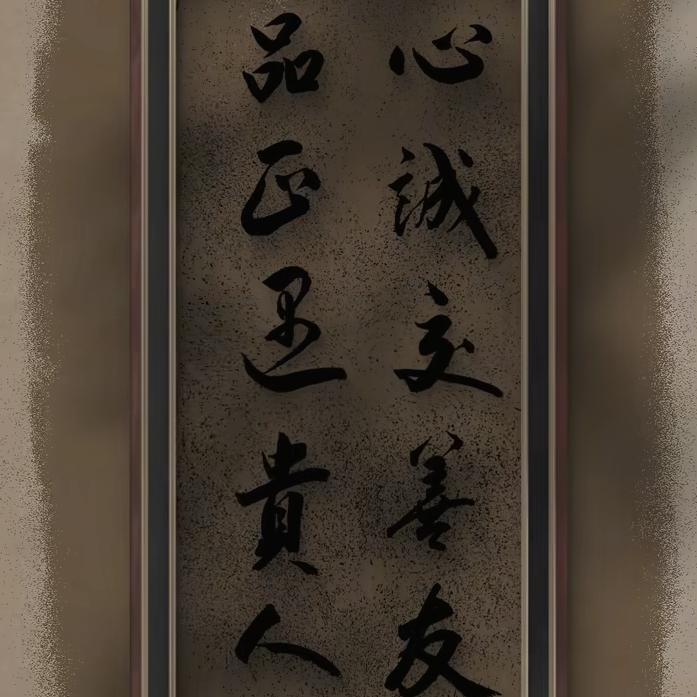 心誠交善友
品正遇貴人